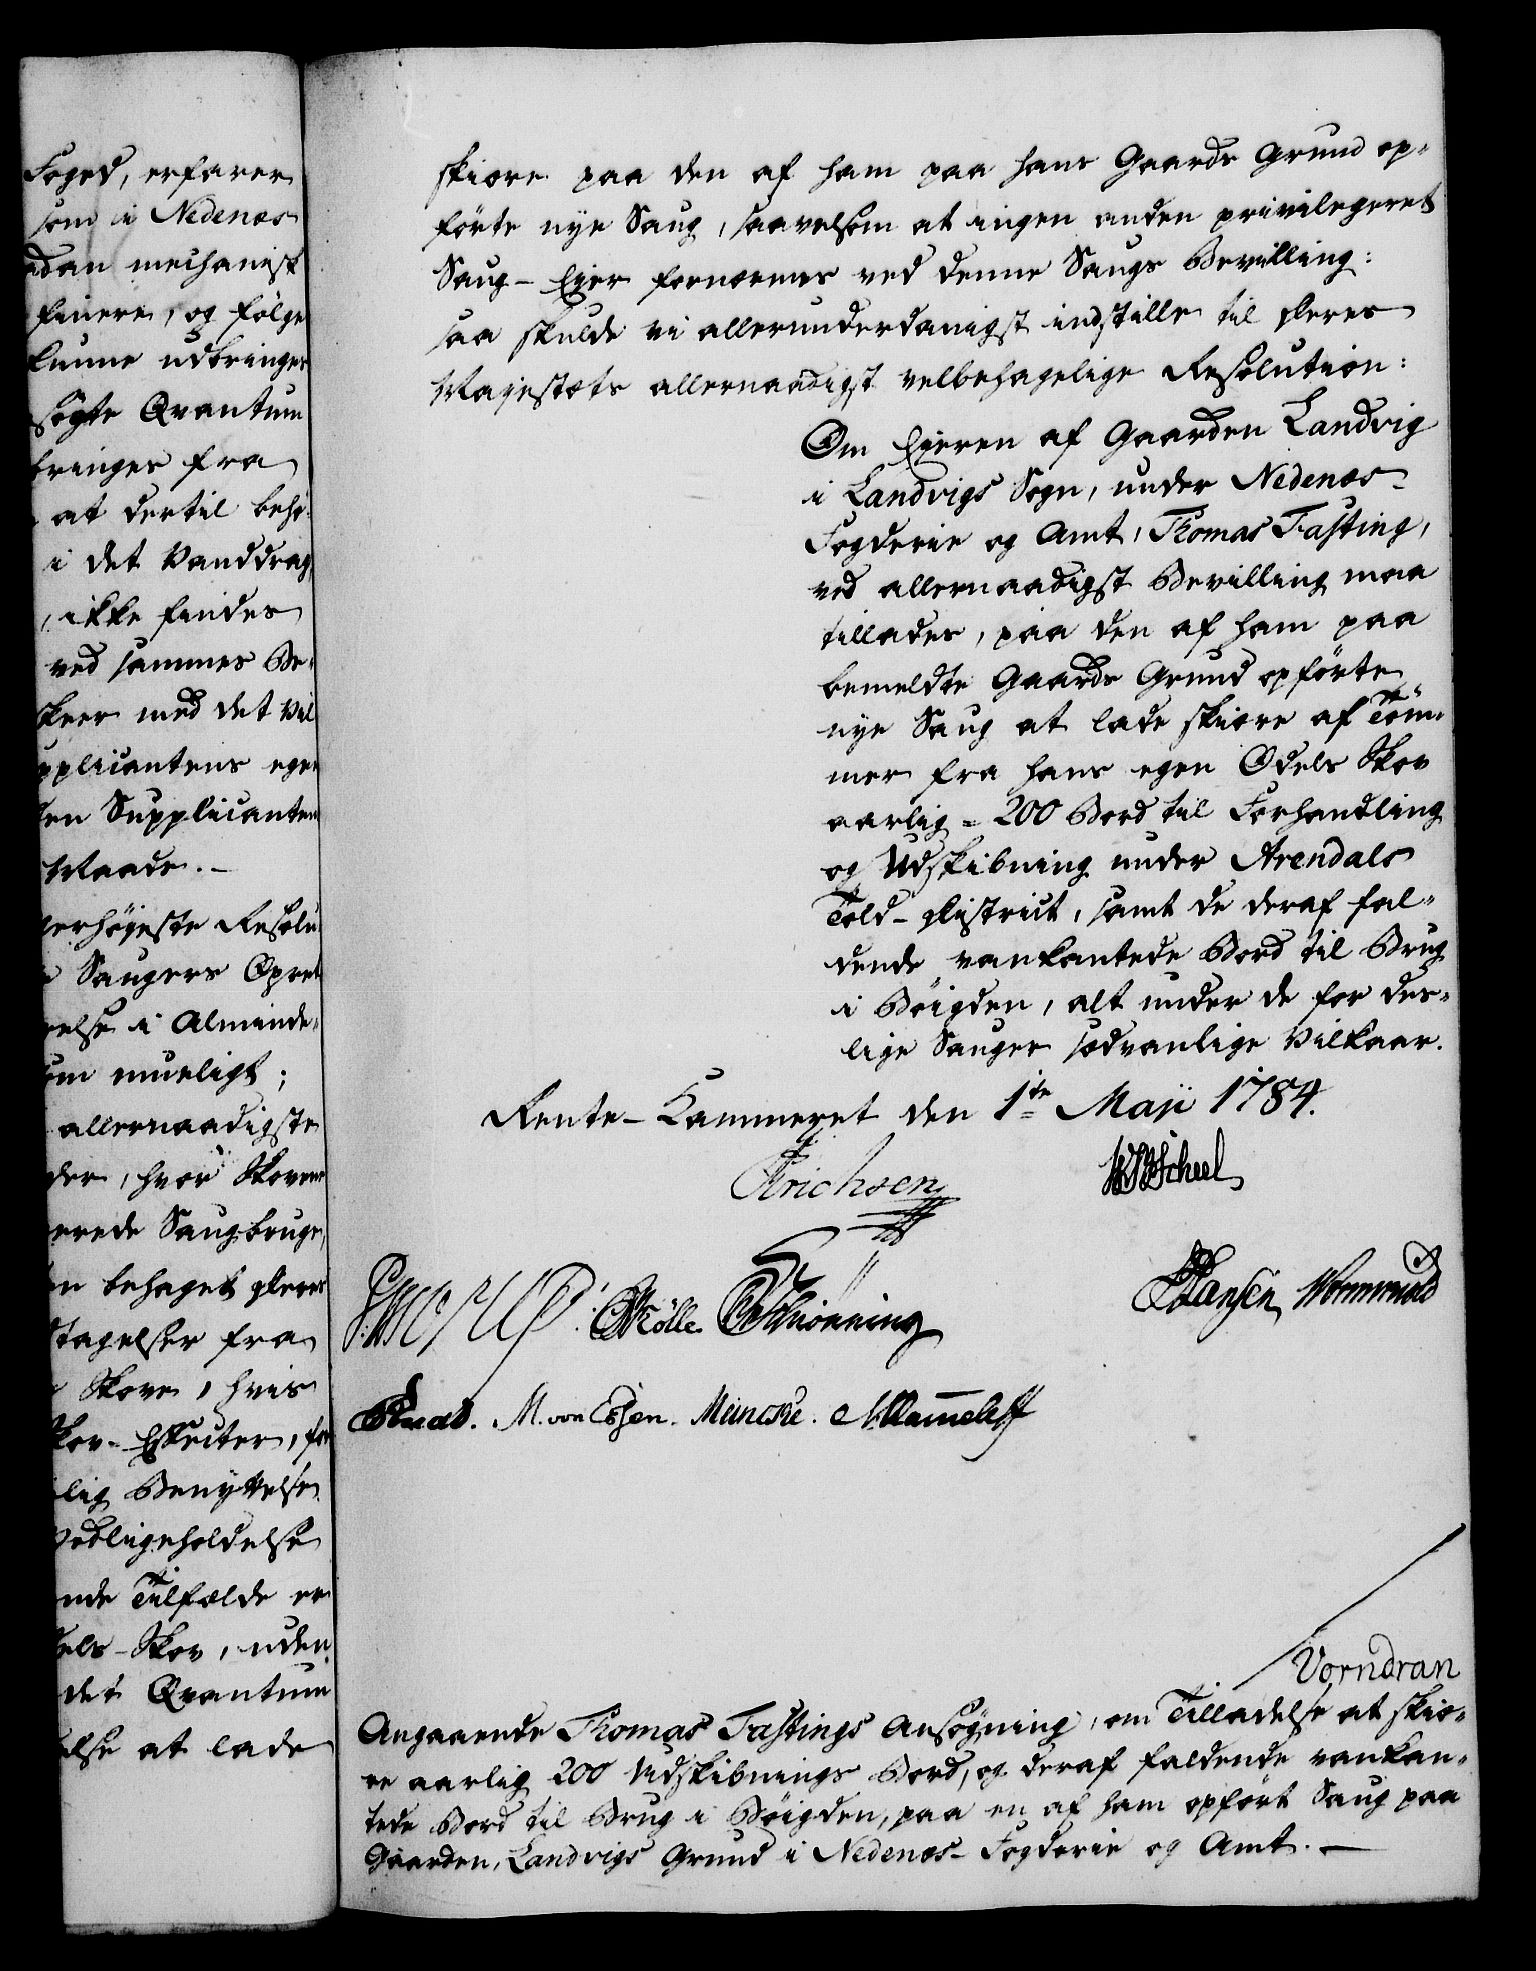 Foged, erfarer
som i Nedenæs
adan mechanisk
finere, og følge
kunne udbringes
søgte Qvantum
bringes fra
at dertil behø-
i det Vanddrag,
, ikke findes
ved sammes Be-
skeer med det vil
upplicantens egen
ten Supplicanten
Maade. -
lerhøyeste Resolu
e Saugers Opret
relse i Alminde-
om mueligt;
allernaadigste
der, hvor Skovene
erede Saugbruge,
en behaget Deres
tagelser fra
e Skove, hvis
Skov-Effecter, for
lig Benyttelse
Vedligeholdelse
nde Tilfælde er
dels-Skov, uden
det Qvantum
else at lade
skiære paa den af ham paa hans Gaards Grund op-
førte nye Saug, saavelsom at ingen anden privilegeret
Saug-Eier fornærmes ved denne Saugs Bevilling:
saa skulde vi allerunderdanigst indstille til Deres
Majestæts allernaadigst velbehagelige Resolution:
Om Eieren af Gaarden Landvig
i Landvigs Sogn, under Nedenæs-
Fogderie og Amt, Thomas Fasting,
ved allernaadigst Bevilling maa
tillades, paa den af ham paa
bemeldte Gaards Grund opførte
nye Saug at lade skiære af Töm-
mer fra hans egen Odels Skov
aarlig = 200 Bord til Forhandling
og Udskibning under Arendals
Told-District, samt de deraf fal-
dende vankantede Bord til Brug
i Bøigden, alt under de for des-
lige Sauger sædvanlige Vilkaar.
Rente-Kammeret den 1te Maji 1784.
Erichsen Scheel
Mölle Schiönning Hansen Wormwold
M. von Essen. Meincke.
Vorndran
Angaaende Thomas Fastings Ansøgning, om Tilladelse at skiæ-
re aarlig 200 Udskibnings Bord, og deraf faldende vankan-
tede Bord til Brug i Bøigden, paa en af ham opført Saug paa
Gaarden, Landvigs Grund i Nedenæs-Fogderie og Amt. -